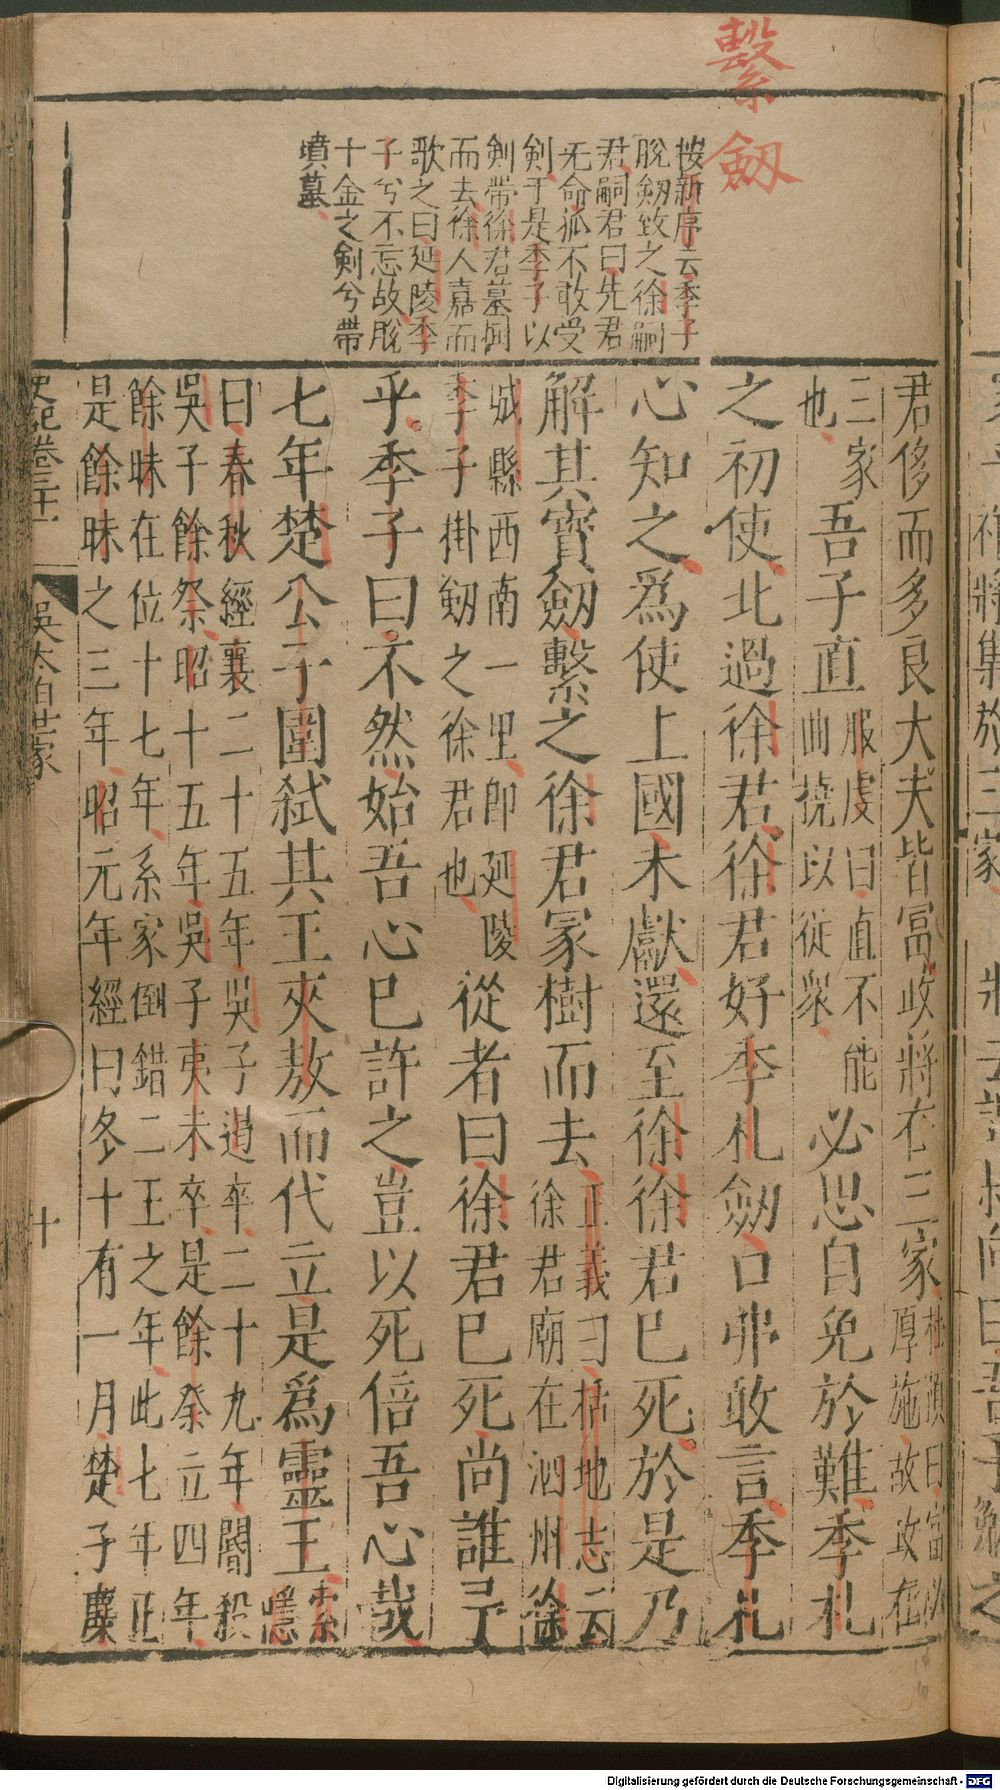 繫劔
按新序云季子
脫劔致之徐嗣
君嗣君曰先君
无命孤不敢受
剣于是季子以
剣帶徐君墓樹
而去徐人嘉而
歌之曰延陵季
子兮不忘故脫
十金之剣兮帶
墳墓
君侈而多良大夫皆冨政將在三家杜預曰富必
厚施故政在
三家
也吾子直服虔曰直不能
曲撓以從衆必思自免於難季札
之初使北過徐君徐君好季札劔口弗敢言季札
心知之爲使上國未獻還至徐徐君已死於是乃
解其寳劔繫之徐君冢樹而去正義曰括地志云
徐君廟在泗州徐
城縣西南一里即延陵
季子掛劔之徐君也從者曰徐君已死尚誰予
乎季子曰不然始吾心已許之豈以死倍吾心哉
七年楚公子圍弑其王夾敖而代立是爲靈王索
隱
曰春秋經襄二十五年吳子遏卒二十九年閽殺
吳子餘祭昭十五年吳子夷末卒是餘祭立四年
餘昧在位十七年系家倒錯二王之年此七年正
是餘昧之三年昭元年經曰冬十有一月楚子麇
史記卷三十一
吳太伯世家
十
Digitalisierung gefördert durch die Deutsche Forschungsgemeinschaft - DFG